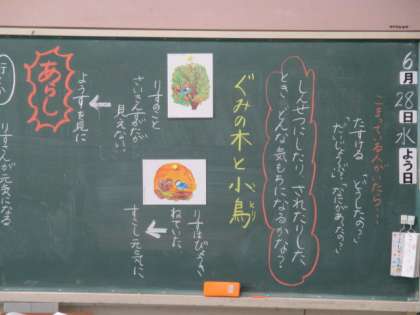 6月28日水よう日
こまっている人がいたら…
たすける 「どうしたの?」
「だいじょうぶ?」「なにがあったの?」
しんせつにしたり、されたりした
とき、どんな気もちになるかな?
ぐみの木と小鳥
りすのこと
さいきんすがたが
見えない。
ようすを見に
あらし
りすはびょうき
ねていた。
すこし元気に
りすさんが元気になる